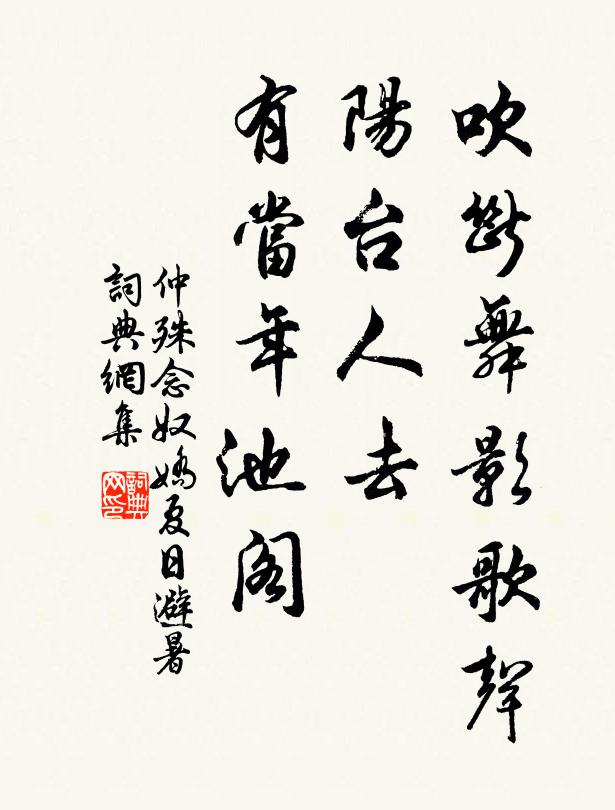 吹斷舞影歌聲
陽台人去
有當年池閣
仲殊念奴嬌夏日避暑
詞典網集
詞典
网印